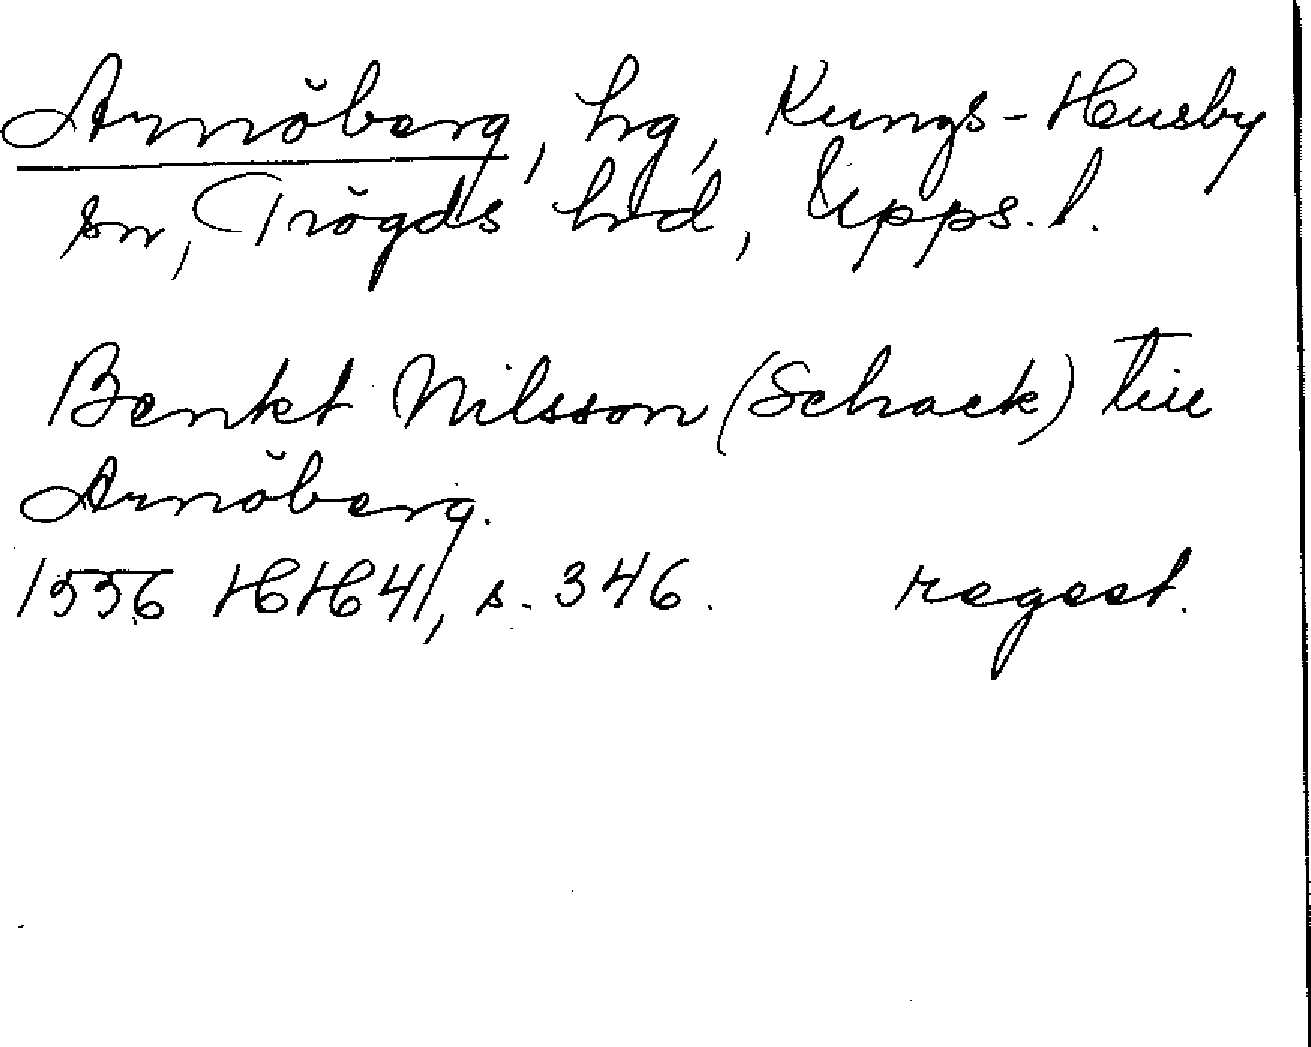 Arnöberg, hg, Kungs-Husby
sn, Trögds hd, Upps. l.
Benkt Nilsson (Schack) till
Arnöberg.
1556 HH 41, s. 346. regest.